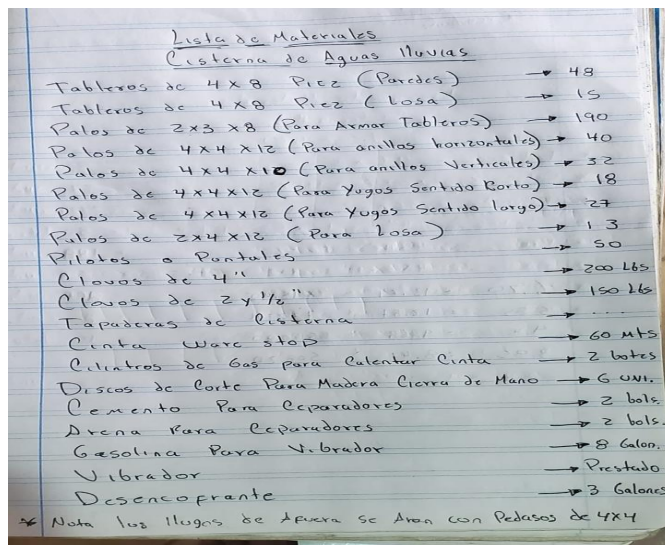 Lista de Materiales
Cisterna de Aguas lluvias
Tableros de 4x8 Piez (Paredes) → 48
Tableros de 4x8 Piez (Losa) → 15
Palos de 2x3x8 (Para Armar Tableros) → 190
Palos de 4x4x12 (Para anillos horizontales) → 40
Palos de 4x4x10 (Para anillos Verticales) → 32
Palos de 4x4x12 (Para Yugos Sentido Corto) → 18
Palos de 4x4x12 (Para Yugos Sentido largo) → 27
Palos de 2x4x12 (Para Losa) → 13
Pilotos o Puntales → 50
Clovos de 4" → 200 Lbs
Clovos de 2 y 1/2" → 150 Lbs
Tapaderas de Cisterna → ....
Cinta Ware stop → 60 Mts
Cilintros de Gas para Calentar Cinta → 2 botes
Discos de Corte Para Madera Cierra de Mano → 6 UNI.
Cemento Para Ceparadores → 2 bols.
Arena Para Ceparadores → 2 bols.
Gasolina Para Vibrador → 8 Galon.
Vibrador → Prestado
Desencofrante → 3 Galones
* Nota los llugos de Afuera se Aran con Pedasos de 4x4